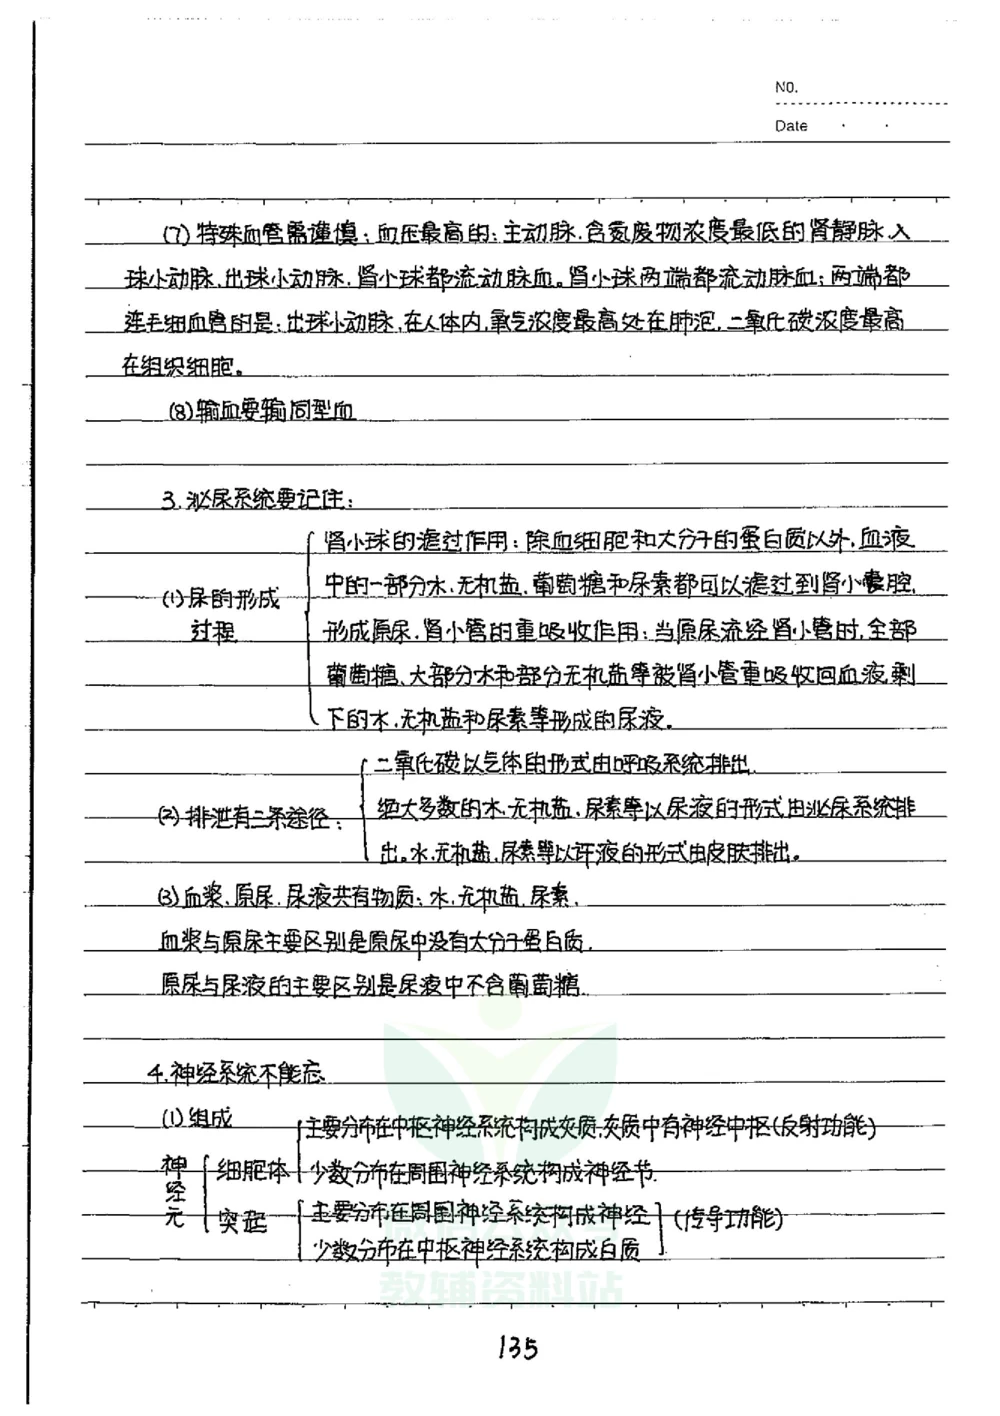 NO.
Date
(7)特殊血管需谨慎:血压最高的:主动脉.含氮废物浓度最低的肾静脉.入
球小动脉.出球小动脉.肾小球都流动脉血。肾小球两端都流动脉血;两端都
连毛细血管的是:出球小动脉,在人体内,氧气浓度最高处在肺泡.二氧化碳浓度最高
在组织细胞。
(8)输血要输同型血
3.泌尿系统要记住:
肾小球的滤过作用:除血细胞和大分子的蛋白质以外,血液
中的一部分水.无机盐.葡萄糖和尿素都可以滤过到肾小囊腔,
(1)尿的形成
过程
形成原尿.肾小管的重吸收作用:当原尿流经肾小管时,全部
葡萄糖、大部分水和部分无机盐等被肾小管重吸收回血液,剩
下的水.无机盐和尿素等形成的尿液。
二氧化碳以气体的形式由呼吸系统排出.
(2)排泄有三条途径:
绝大多数的水.无机盐.尿素等以尿液的形式由泌尿系统排
出。水.无机盐.尿素等以汗液的形式由皮肤排出。
(3)血浆.原尿.尿液共有物质:水.无机盐.尿素.
血浆与原尿主要区别是原尿中没有大分子蛋白质.
原尿与尿液的主要区别是尿液中不含葡萄糖.
4.神经系统不能忘
(1)组成
主要分布在中枢神经系统构成灰质,灰质中有神经中枢(反射功能)
神经元
细胞体
少数分布在周围神经系统构成神经节.
突起
主要分布在周围神经系统构成神经
(传导功能)
少数分布在中枢神经系统构成白质
教辅资料站
135